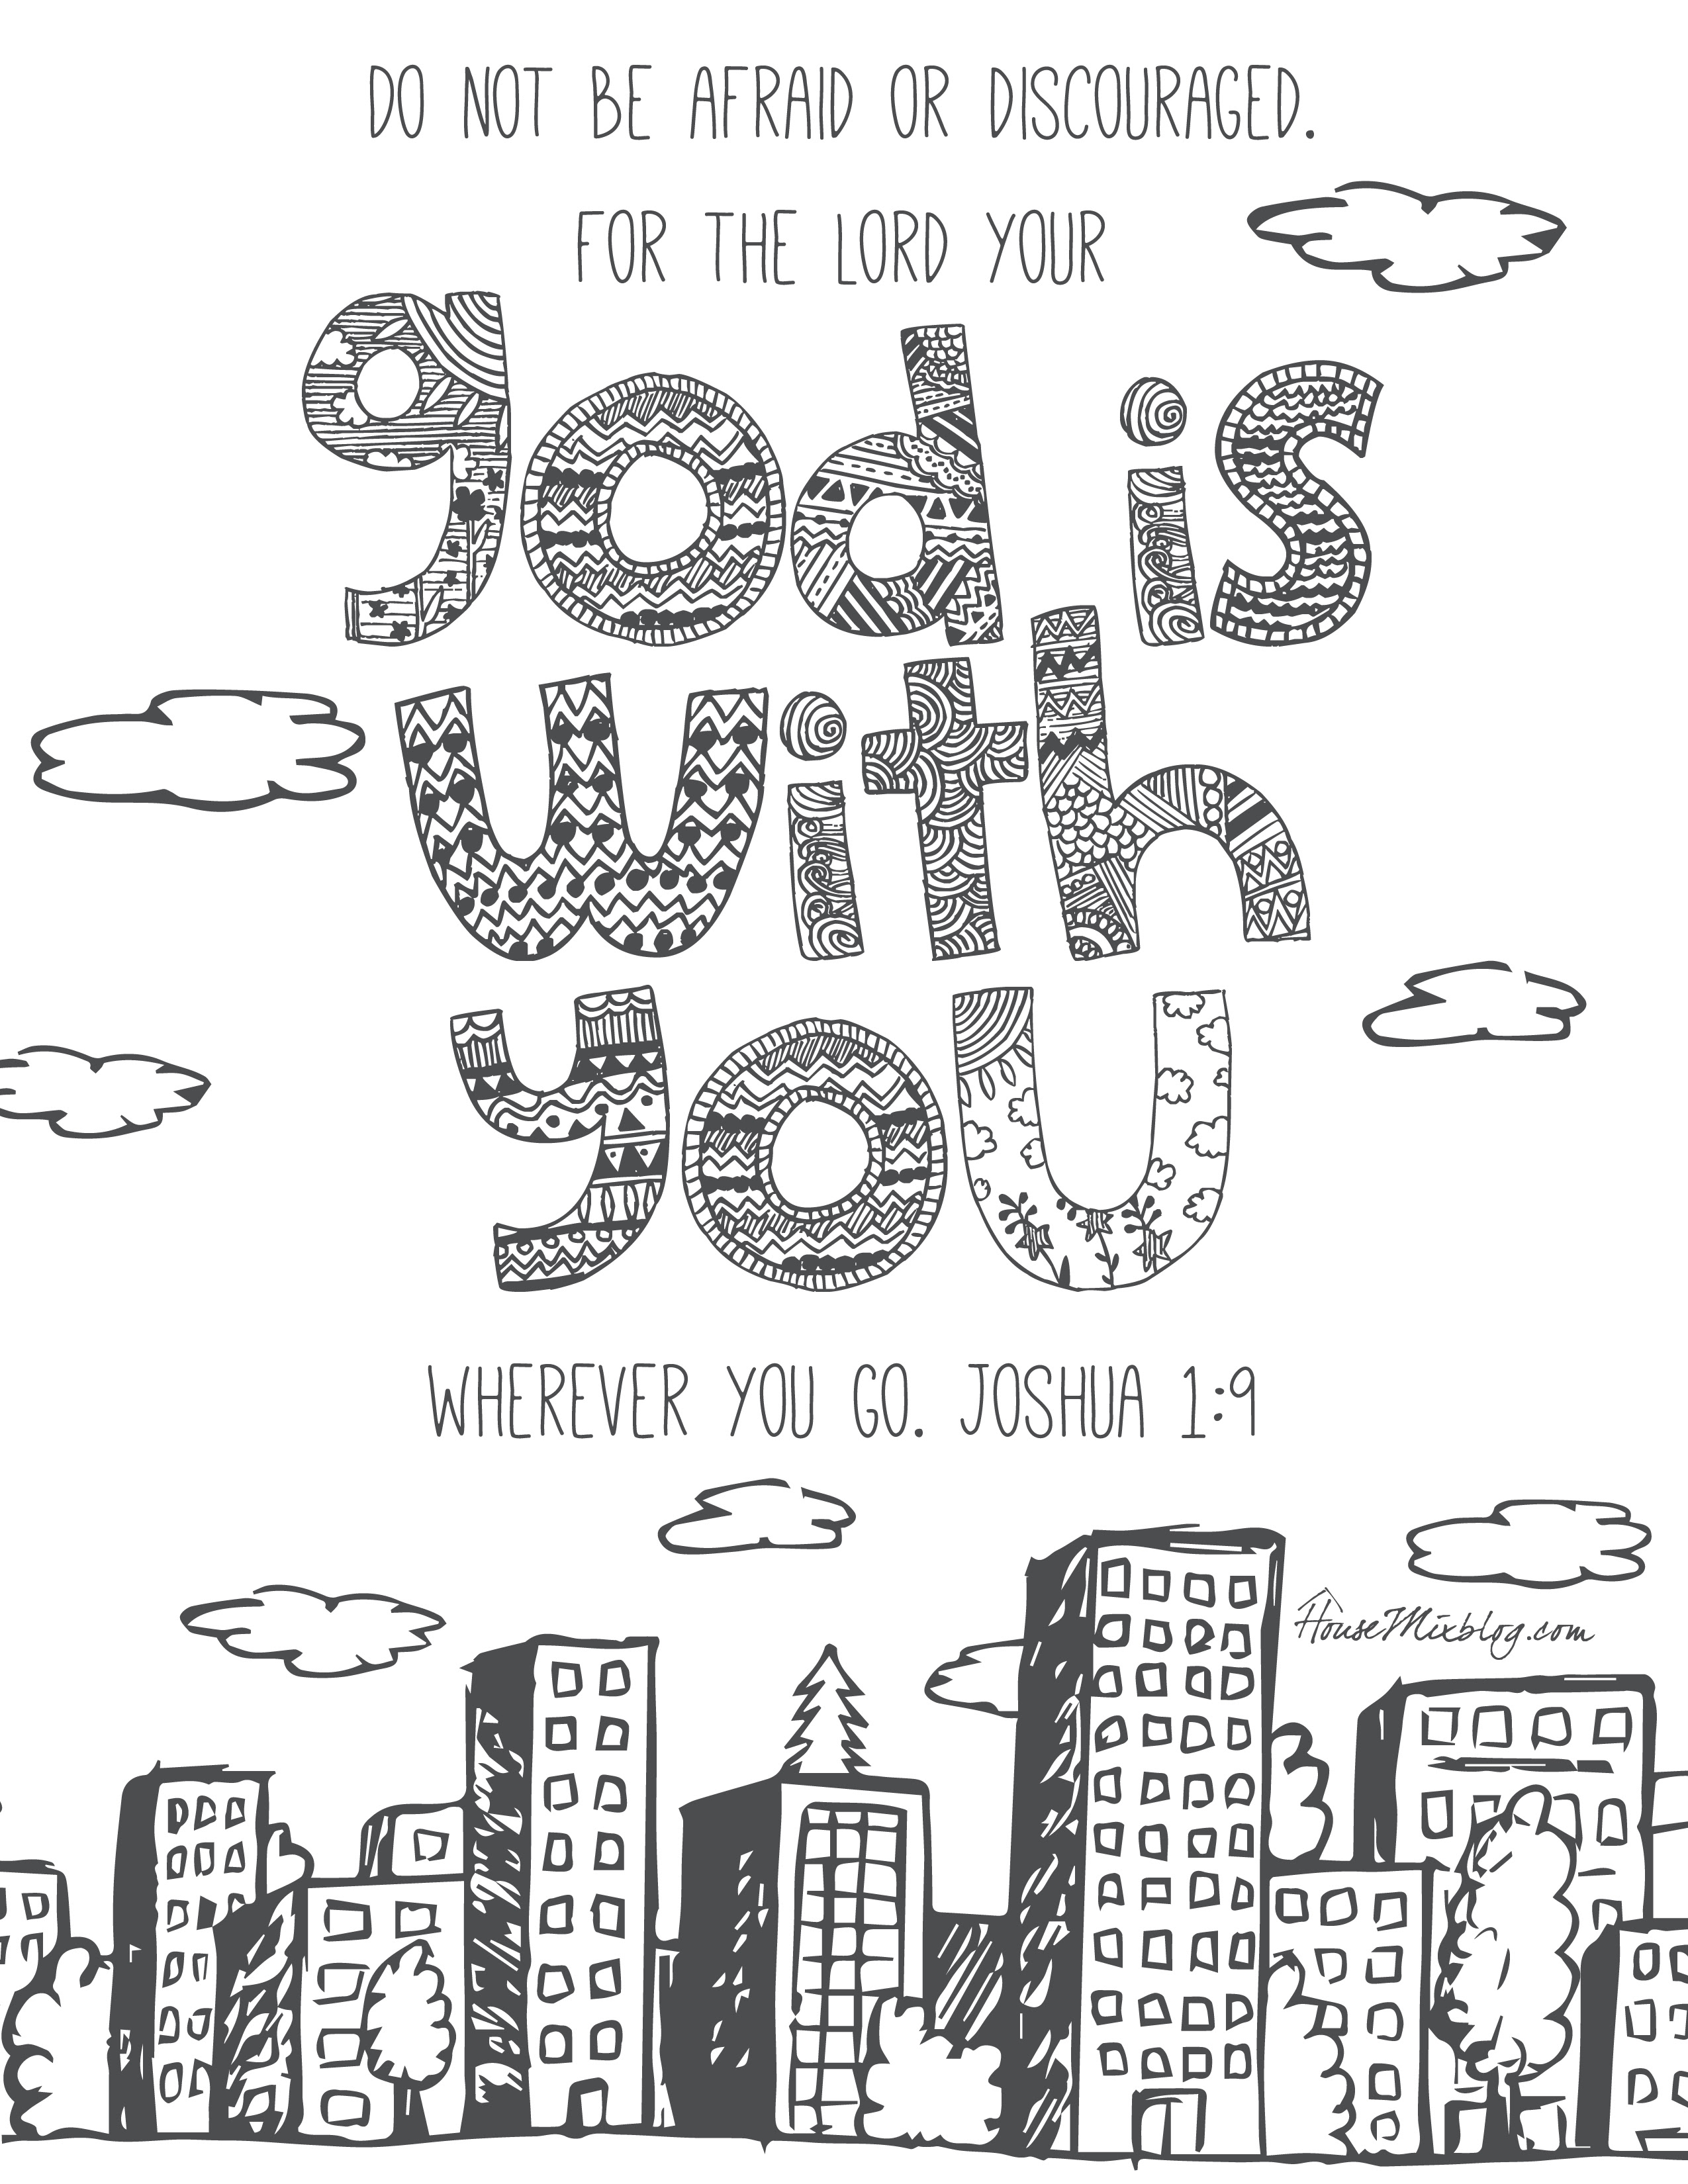 DO NOT BE AFRAID OR DISCOURAGED.
FOR THE LORD YOUR
god is
with
you
WHEREVER YOU GO. JOSHUA 1:9
HouseMixblog.com